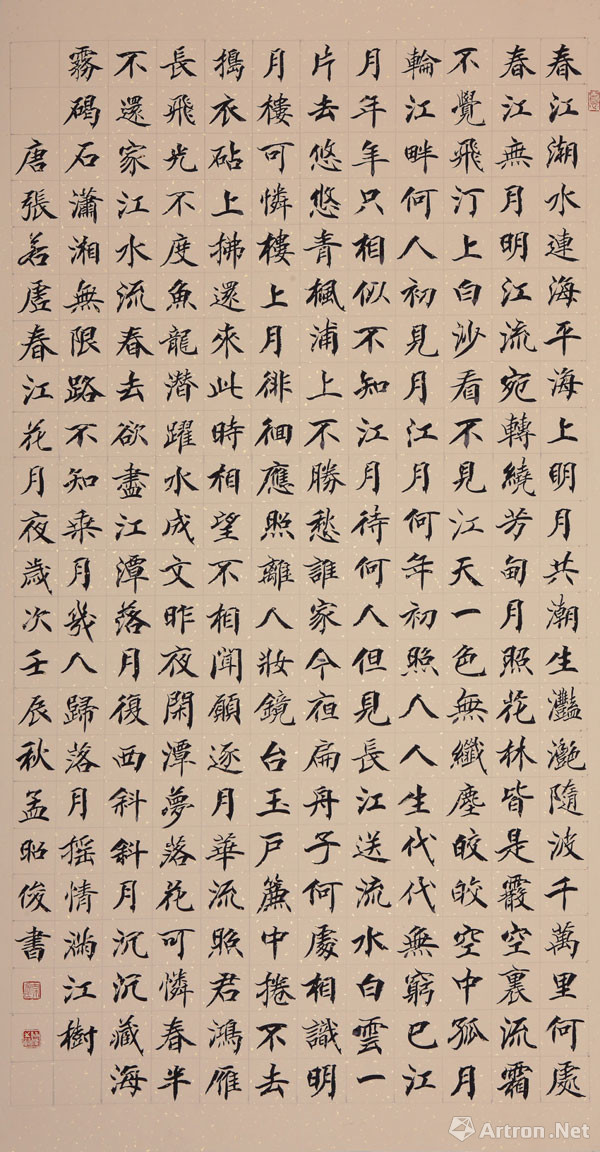 春江潮水連海平海上明月共潮生灩灔隨波千萬里何處
春江無月明江流宛轉繞芳甸月照花林皆是霰空裏流霜
不覺飛汀上白沙看不見江天一色無纖塵皎皎空中孤月
輪江畔何人初見月江月何年初照人人生代代無窮已江
月年年只相似不知江月待何人但見長江送流水白雲一
片去悠悠青楓浦上不勝愁誰家今夜扁舟子何處相識明
月樓可憐樓上月徘徊應照離人妝鏡台玉戶簾中捲不去
搗衣砧上拂還來此時相望不相聞願逐月華流照君鴻雁
長飛光不度魚龍潛躍水成文昨夜閑潭夢落花可憐春半
不還家江水流春去欲盡江潭落月復西斜斜月沉沉藏海
霧碣石瀟湘無限路不知乘月幾人歸落月搖情滿江樹
唐張若虛春江花月夜歲次壬辰秋孟昭俊書
Artron.Net